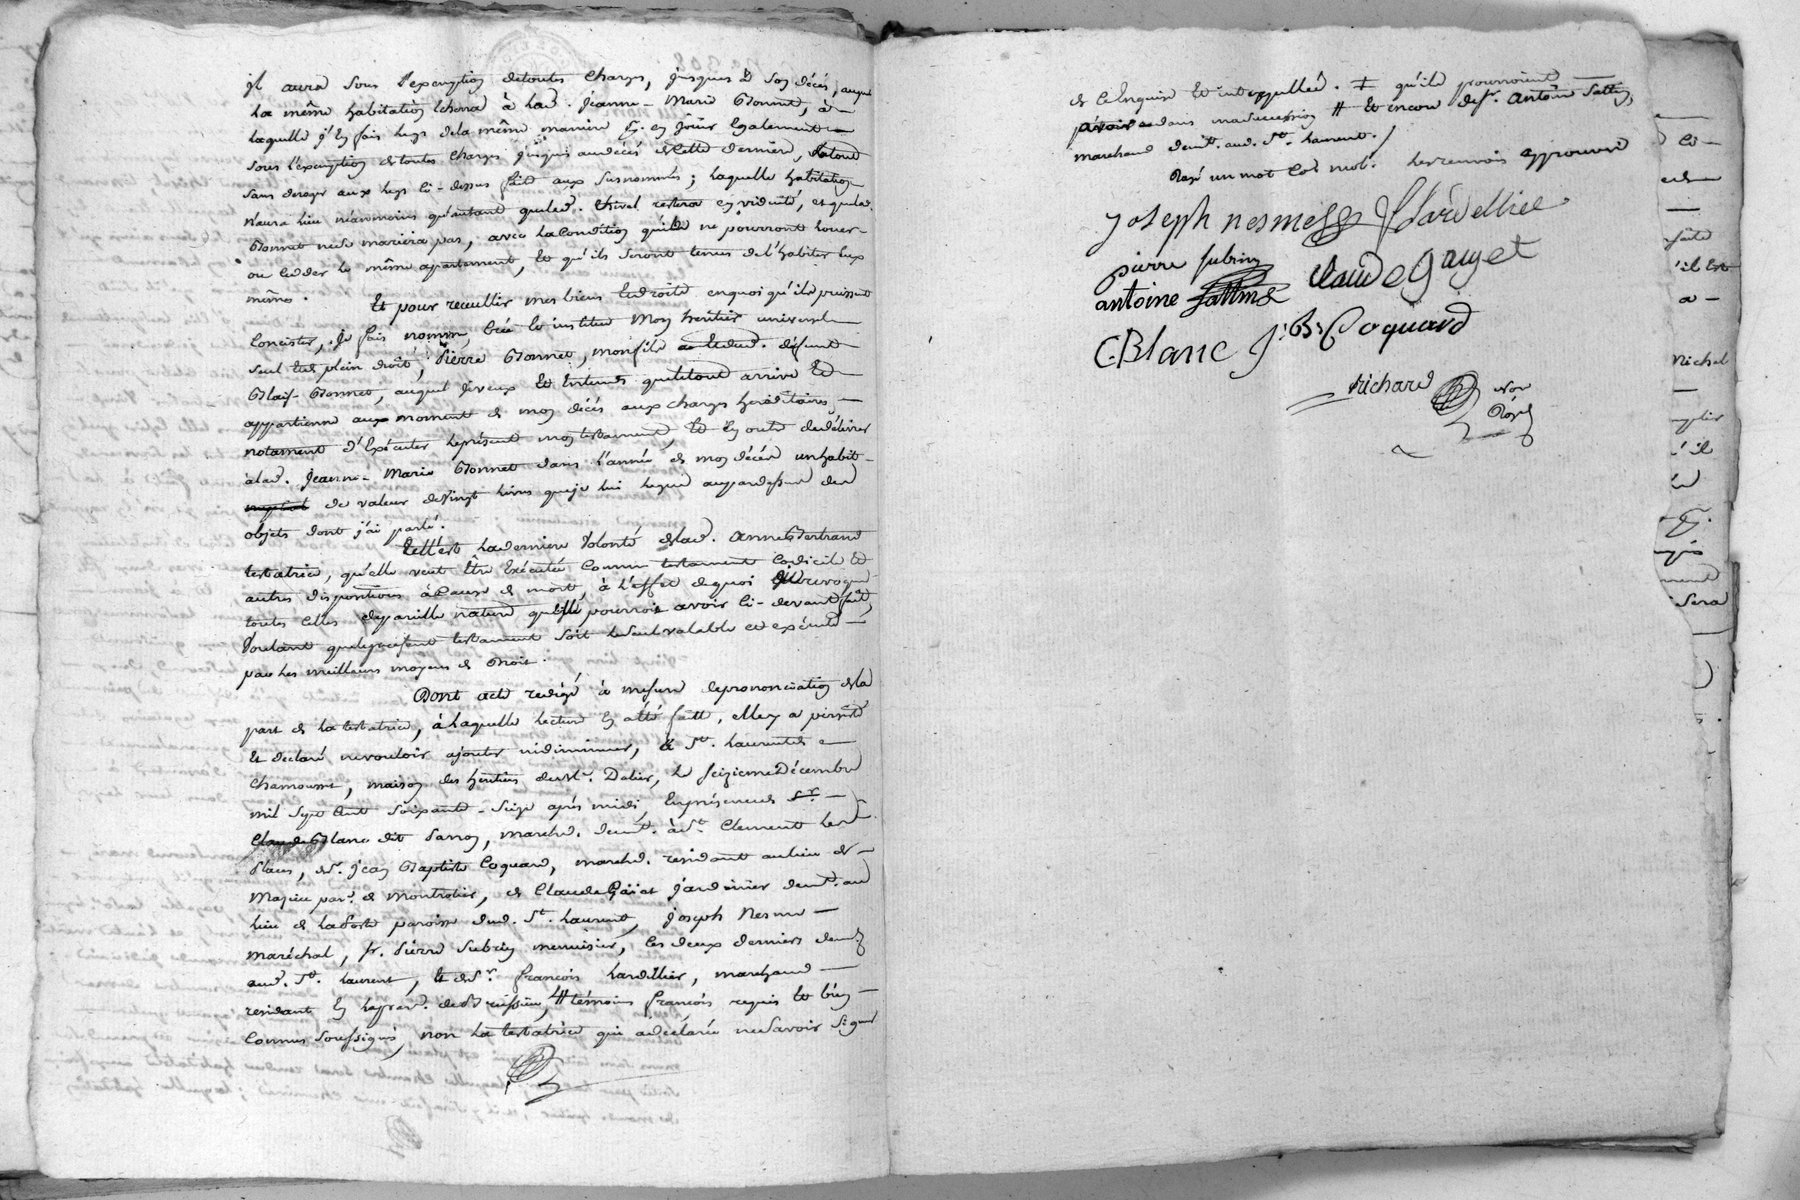 il aura sous l'exemption detoutes charges, jusques à son décès, auquel
la même habitation echerra à lad. Jeanne-Marie Bonnet, à
laquelle j'en fais legs dela même maniere p.r en joüir egalement
sous l'exemption de toutes charges jusques audécès decette derniere, letout
sans deroger aux legs ci-dessus fait aux susnommés; laquelle habitation
n'aura lieu néanmoins qu'autant queled. restera en viduité, et quelad.
Bonnet nese mariera pas, avec lacondition qu'ils ne pourront louer
ou ceder le même apartement, et qu'ils seront tenus de l'habiter eux
mêmes.
Et pour recuillir mes biens et droits enquoi qu'ils puissent
consister, je fais nomme, crée et institue mon heritier universel
seul et de plein droit, Pierre Bonnet, monfils defunt
Blaise Bonnet, auquel je veux et entends queletout arrive et
appartienne aux moment de mon décès aux charges héréditaires,
notament d'executer leprésent mon testament, et en outre dedélivrer
alad. Jeanne-Marie Bonnet dans l'année de mon décès unhabit
de valeur devingt livres queje lui legue aupardessus des
objets dont j'ai parlé.
Tell'est laderniere volonté delad. Anne Bertrand
testatrice, qu'elle veut être exécutée comme testament codicile et
autres dispositions à cause de mort, à l'effet dequoi elle revoque
toutes celles depareille nature qu'elle pourroit avoir ci-devant fait,
voulant queleprésent testament soit leseul valable et exécuté
par les meilleurs moyens de droit.
Dont acte redigé à mesure deprononciation dela
part de la testatrice, à laquelle lecture en a été faitte, elle y a persisté
et declaré nevouloir ajouter nidiminuer, à St. Laurent de
Chamousset, maison des héritiers de Mr. Dalier, le seizieme Décembre
mil sept cent soixante-seize après midi, en présences de Sr.
Claude Blanc dit Sanson, march.d demt. à St. Clement les
Places, de Sr. Jean Baptiste Coquard, march.d residant au lieu de
Mazieu par.e de Montrotier, de Claude Gaiet jardinier demt. au
lieu de laporte paroisse dud. St. Laurent, Joseph Nesme
maréchal, Sr. Pierre Subrin menuisier, les deux derniers demt.
aud. St. Laurent, et de Sr. François Lardellier, marchand
residant en la par. ⧺ témoins françois requis et bien
connus soussignés, non la testatrice qui adéclaré nesavoir signer
de ce enquise et interpellée. ‡ qu'ils pourroient
avoir dans masuccession ⧺ et encore de Sr. Antoine
marchand demt. aud. St. Laurent.
Rayé un mot les renvois approuvés
Joseph nesme f lardellier
pierre subrin claude gayet
antoine
C. Blanc J. B. Coquard
Richard Nore
Royal